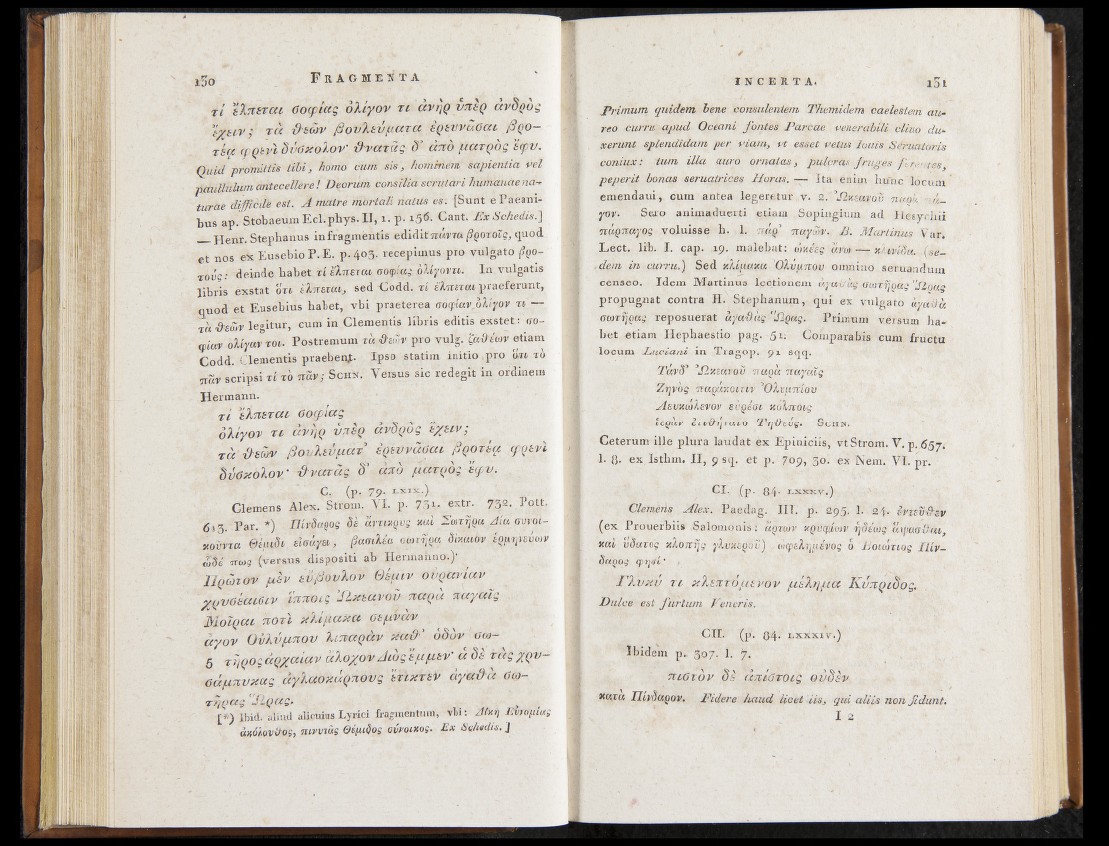 130 FRAGMENTA
τί ἔλπεαι σοφίας ὀλίγον τι ἀνὴρ ὑπὲρ ἀνδρὸς
ἔχειν; τὰ θεῶν βουλεύματα ἐρευνᾶσαι βρο—
τέᾳ φρενὶ δύσκολον· θνατᾶς δ' ἀπὸ ματρὸς ἔφυ.
Quid promittis tibi, homo cum sis, hominem sapientia vel
paullulum antecellere! Deorum consilia scrutari humanae na—
turae difficile est. A matre mortali natus es. [Sunt e Paeani—
bus ap. Stobaeum Ecl. phys. II, 1. p. 156. Cant. Ex Schedis.]
— Henr. Stephanus in fragmentis edidit πάντα βροτοῖς, quod
et nos ex Eusebio P. E. p. 403. recepimus pro vulgato βρο—
τούς: deinde habet τί ἔλπεται σοφίας ὀλίγοντι. In vulgatis
libris exstat ὅτι ἔλπεται, sed Codd. τί ἔλπεται praeferunt,
quod et Eusebius habet, vbi praeterea σοφίαν ὀλίγον τι —
τὰ θεῶν legitur, cum in Clementis libris editis exstet: σο—
φίαν ὀλίγαν τοι. Postremum τὰ θεῶν pro vulg. ζαθέων etiam
Codd. Clementis praebent. Ipso statim initio pro ὅτι τὸ
πᾶν scripsi τί τὸ πᾶν; SCHN. Versus sic redegit in ordinem
Hermann.
τί ἔλπεται σοφίας
ὀλίγον τι ἀνὴρ ὑπὲρ ἀνδρὸς ἔχειν;
τὰ θεῶν βουλεύματ' ἐρευνᾶσαι βροτέᾳ φρενὶ
δύσκολον· θνατᾶς δ' ἀπὸ ματρὸς ἔφυ.
C. (p. 79. LXIX.)
Clemens Alex. Strom. VI. p. 731. extr. 732. Pott.
613. Par. *) Πίνδαρος δὲ ἄντικρυς καὶ Σωτῆρα Δία συνοι—
κοῦντα Θέμιδι εἰσάγει, βασιλέα σωτῆρα δίκαιον ἑρμηνεύων
ὧδέ πως (versus dispositi ab Hermanno.)·
Πρῶτον μὲν εὔβουλον Θέμιν οὐρανίαν
χρυσέαισιν ἵπποις Ὠκεανοῦ παρὰ παγαῖς
Μοῖραι ποτὶ κλίμακα σεμνὰν
ἄγον Οὐλύμπου λιπαρὰν καθ' ὁδὸν σω—
5 τῆρος ἀρχαίαν ἄλοχον Διὸς ἔμμεν· ἁ δὲ τὰς χρυ—
σάμπυκας ἀγλαοκάρπους ἔτικτεν ἀγαθὰ σω—
τῆρας Ὥρας.
[*) Ibid. aliud alicuius Lyrici fragmentum, vbi: Δίκη Εὐνομίας
ἀκόλουθος, πινυτᾶς Θέμιδος σύνοικος. Ex Schedis.]
INCERTA. 131
Primum quidem bene consulentem Themidem caelestem au—
reo curru apud Oceani fontes Parcae venerabili clivo du—
xerunt splendidam per viam, vt esset vetus Iouis Seruatoris
coniux: tum illa auro ornatas, pulcras fruges ferentes,
peperit bonas seruatrices Horas. — Ita enim hunc locum
emendaui, cum antea legeretur v. 2. Ὠκεανοῦ παρὰ πά—
γον. Sero animaduerti etiam Sopingium ad Hesychii
πάρπαγος voluisse h. l. πὰρ' παγῶν. B. Martinus Var.
Lect. lib. I. cap. 19. malebat: ὠκέες ἄνω — κλινίδα. (se—
dem in curru.) Sed κλίμακα Ὀλύμπου omnino seruandum
censeo. Idem Martinus lectionem ἀγαθὰς σωτῆρας Ὥρας
propugnat contra H. Stephanum, qui ex vulgato ἀγαθὰ
σωτῆρας reposuerat ἀγαθὰς Ὥρας. Primum versum ha—
bet etiam Hephaestio pag. 51. Comparabis cum fructu
locum Luciani in Tragop. 91 sqq.
Τάνδ' Ὠκεανοῦ παρὰ παγαῖς
Ζηνὸς παράκοιτιν Ὀλυμπίου
Λευκώλενον εὐρέσι κόλποις
SCHN.
Ceterum ille plura laudat ex Epiniciis, vt Strom. V. p. 657.
l. 8. ex Isthm. II, 9 sq. et p. 709, 30. ex Nem. VI. pr.
CI. (p. 84. LXXXV.)
Clemens Alex. Paedag. III. p. 295. l. 24. ἐντεῦθεν
(ex Prouerbiis Salomonis: ἄρτων κρυφίων ἡδέως ἅψασθαι,
καὶ ὕδατος κλοπῆς γλυκεροῦ) ὠφελημένος ὁ Βοιώτιος Πίν—
δαρος φησί·
Γλυκύ τι κλεπτόμενον μέλημα Κύπριδος.
Dulce est furtum Veneris.
CII. (p. 84. LXXXIV.)
Ibidem p. 307. l. 7.
πιστὸν δὲ ἀπίστοις οὐδὲν
κατὰ Πίνδαρον. Fidere haud licet iis, qui aliis non fidunt.
I 2